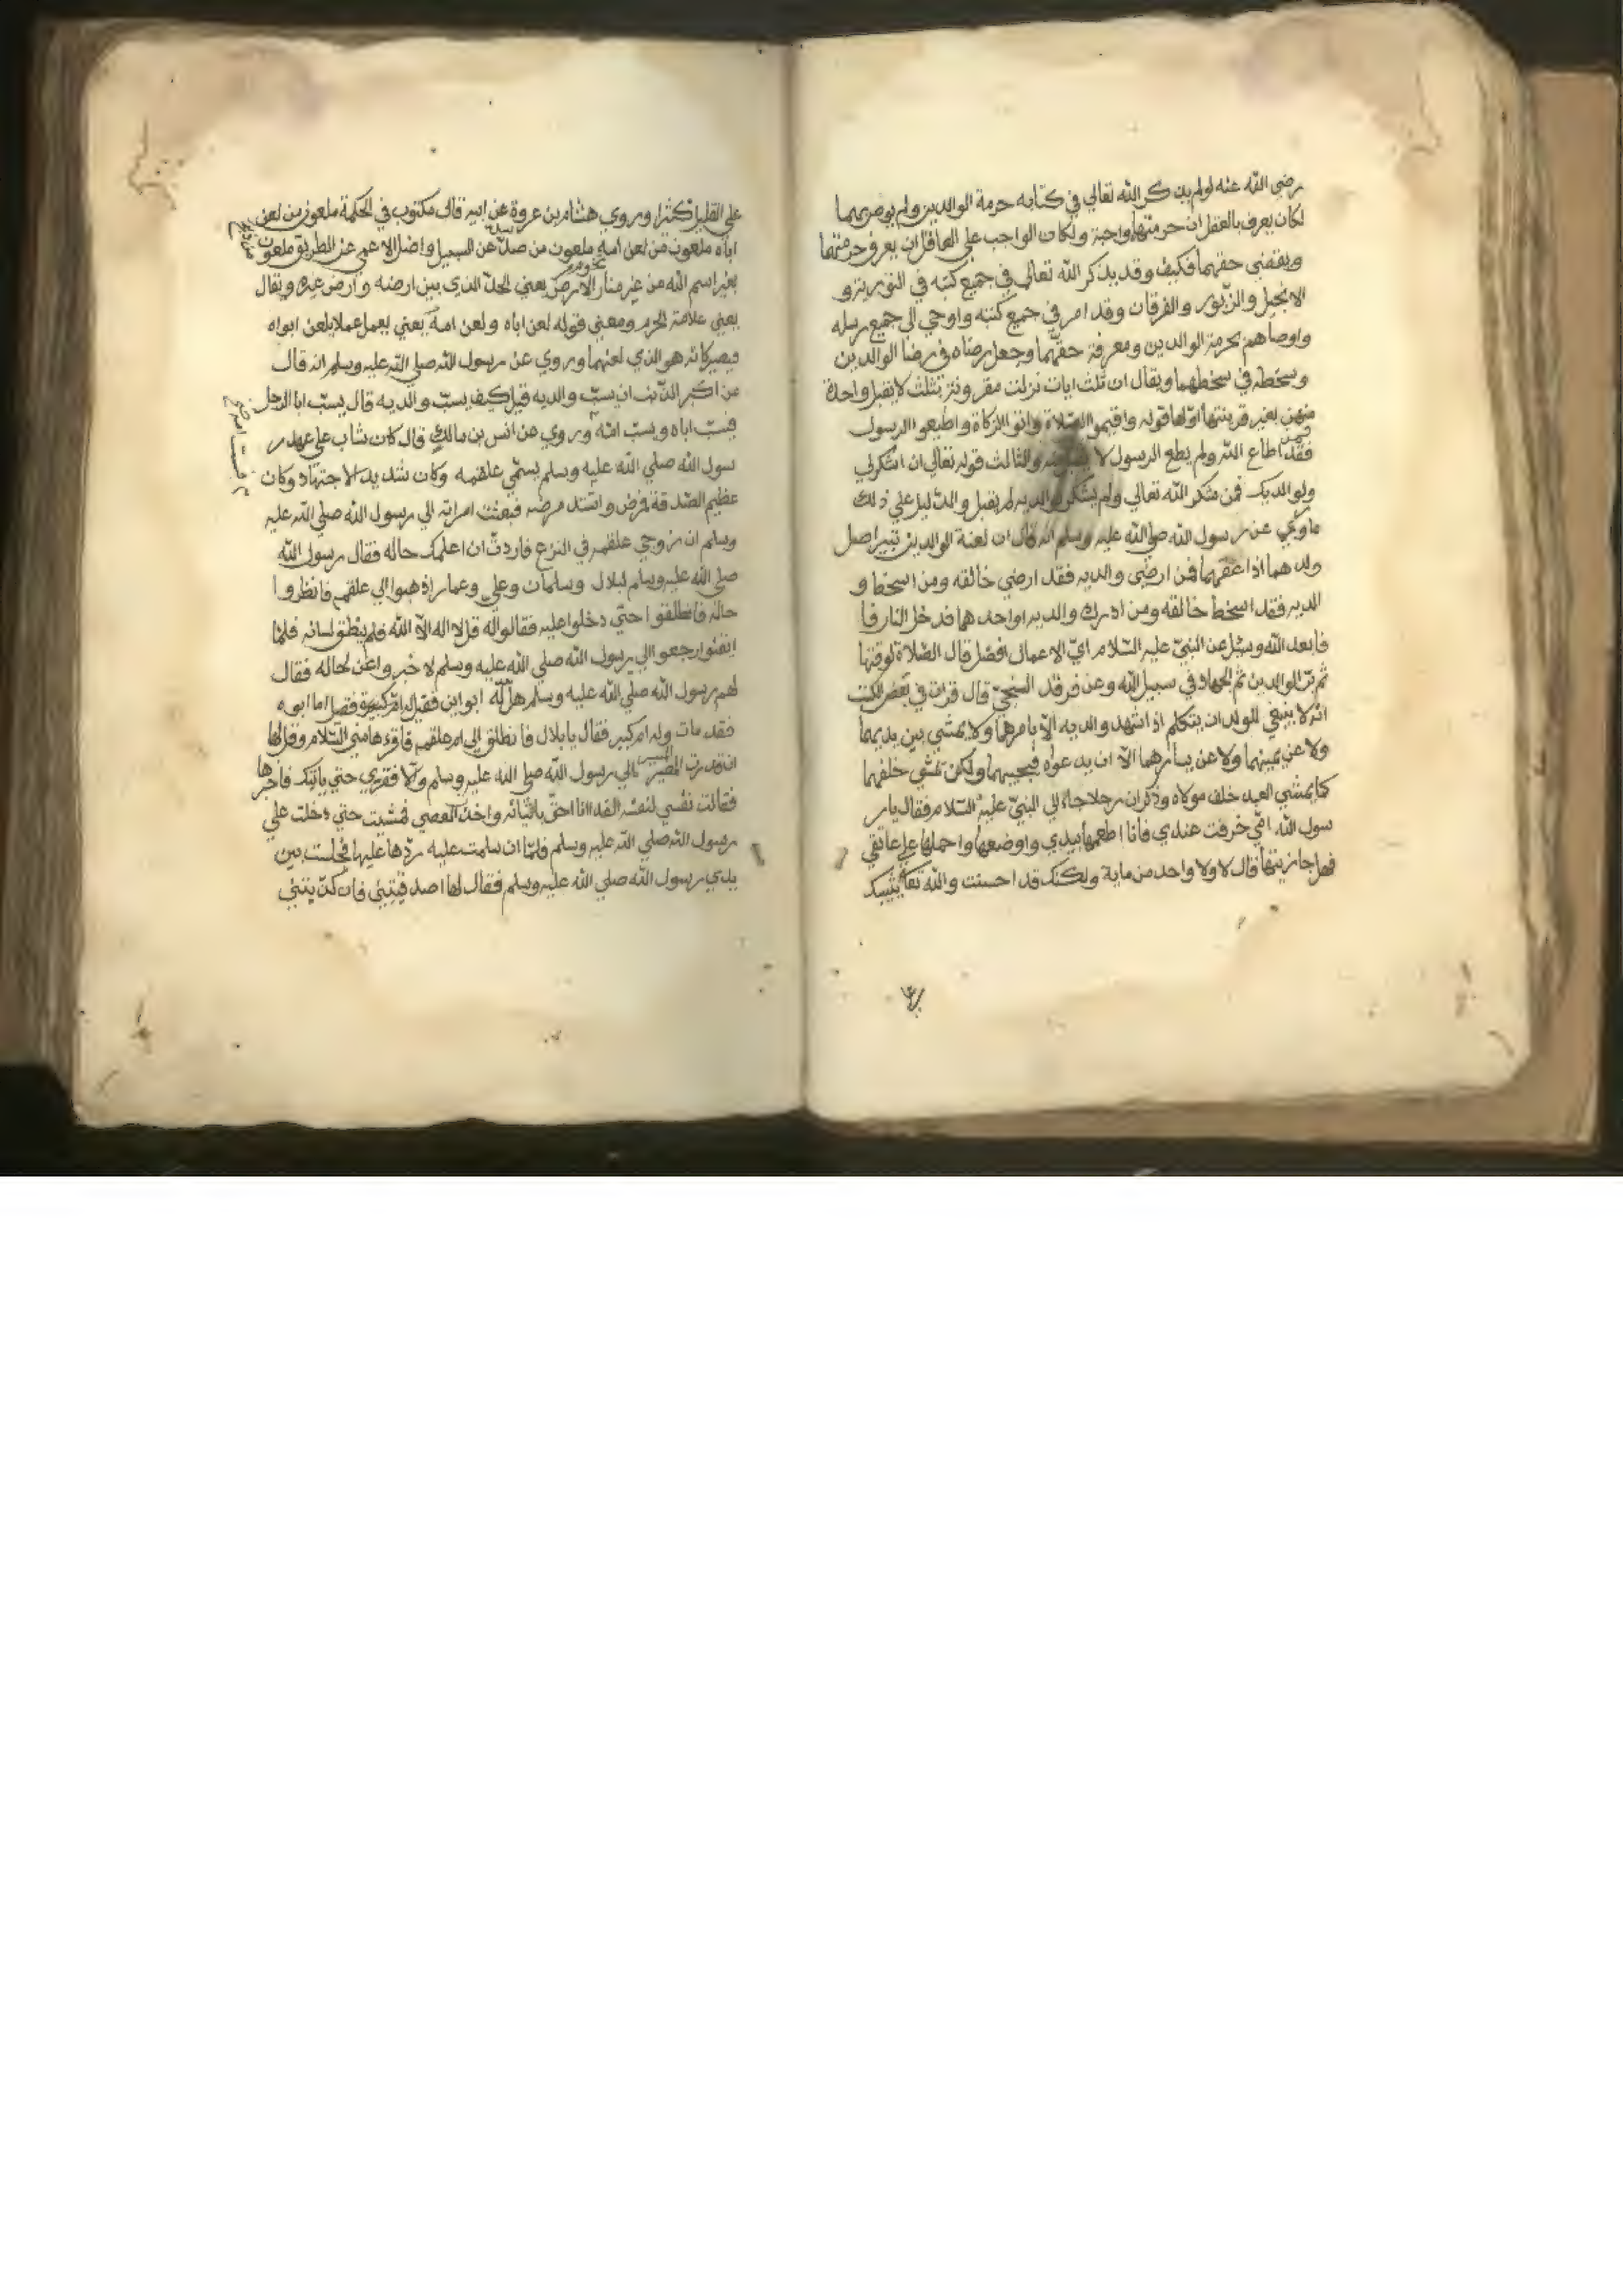 رضي الله عنه لولم يذكر الله تعالي في كتابه حرمة الوالدين ولم يوص بهما
لكان يعرف بالعقل ان حرمتهما واجبة ولكان الواجب علي العاقل ان يعرف حرمتهما
ويقضي حقهما فكيف وقد يذكر الله تعالي في جميع كتبه في التوريتر و
الانجيل والزبور والفرقان وقد امر في جميع كتبه واوحي الي جميع رسله
واوصاهم بحرمة الوالدين ومعرفة حقهما وجعل رضاه في رضا الوالدين
وسخطه في سخطهما ويقال ان ثلث ايات نزلت مقرونتر بثلث لايقبل واحدة
منهن بغير قرينتها اولها قوله واقيموا الصلاة واتوا الزكاة واطيعو الرسول
فقد اطاع الله ولم يطع الرسول لا والثالث قوله تعالي ان اشكرلي
ولوالديك فمن شكر الله تعالي ولم يشكر والديه لم يقبل والدليل علي ذلك
ماروي عن رسول الله صلي الله عليه وسلم انه قال ان لعنة الوالدين تبتر اصل
ولدهما اذا عقهما فمن ارضي والديه فقد ارضي خالقه ومن اسخط و
الديه فقد اسخط خالقه ومن ادرك والديه اواحدهما فدخل النار فا
فابعد الله وسئل عن النبي عليه السلام اي الاعمال افضل قال الصلاة لوقتها
ثم بر الوالدين ثم الجهاد في سبيل الله وعن فرقد السنجي قال قرات في بعض الكتب
انه لا ينبغي للولد ان يتكلم اذا شهد والديه الا بامرهما ولا يمشي بين يديهما
ولا عن يمينهما ولا عن يسارهما الا ان يدعواه فيجيبهما ولكن تمشي خلفهما
كما يمشي العبد خلف مولاه وذكر ان رجلا جاء الي النبي عليه السلام فقال يا ر
سول الله امي خرفت عندي فانا اطعمها بيدي واوضعها واحملها علي عاتقي
فهل جازيتها قال لا ولا واحد من ماية ولكنك قد احسنت والله تعا يثيبك
علي القليل كثيرا وروي هشام بن عروة عن ابيه قال مكتوب في الحكمة ملعون من لعن
اباه ملعون من لعن امه ملعون من صد عن السبيل واضل الاعمي عن الطريق ملعون
بغير اسم الله من غير منار الارض يعني الحد الذي بين ارضه وارض غيره ويقال
يعني علامة الحرم ومعني قوله لعن اباه ولعن امه يعني يعمل عملا يلعن ابواه
فيصير كانه هو الذي لعنهما وروي عن رسول الله صلي الله عليه وسلم انه قال
من اكبر الذنب ان يسب والديه قيل كيف يسب والديه قال يسب ابا الرجل
فيسب اباه ويسب امه وروي عن انس بن مالك قال كان شاب علي عهد ر
سول الله صلي الله عليه وسلم يسمي علقمه وكان شديد الاجتهاد وكان
عظيم الصدقة فمرض واشتد مرضه فبعثت امراته الي رسول الله صلي الله عليه
وسلم ان زوجي علقمه في النزع فاردت ان اعلمك حاله فقال رسول الله
صلي الله عليه وسلم لبلال وسلمان وعلي وعمار اذهبوا الي علقمه فانظروا
حاله فانطلقوا حتي دخلوا عليه فقالواله قل لا اله الا الله فلم ينطق لسانه فلما
ايقنوا رجعوا الي رسول الله صلي الله عليه وسلم لاخبرواعن لحاله فقال
لهم رسول الله صلي الله عليه وسلم هل له ابوان فقيل له ام كبيرة فقيل اما ابوه
فقد مات وله ام كبير فقال يا بلال فانطلق الي ام علقمه فاقرءها مني السلام وقل لها
ان قدرت المسير الي رسول الله صلي الله عليه وسلم والا فقري حتي ياتيك فاخبرها
فقالت نفسي لنفسه الفدا انا احق باتيانه واخذت العصي فمشيت حتي دخلت علي
رسول الله صلي الله عليه وسلم فلما ان سلمت عليه رد ها عليها فجلست بين
يدي رسول الله صلي الله عليه وسلم فقال لها اصدقيني فان كذبتني